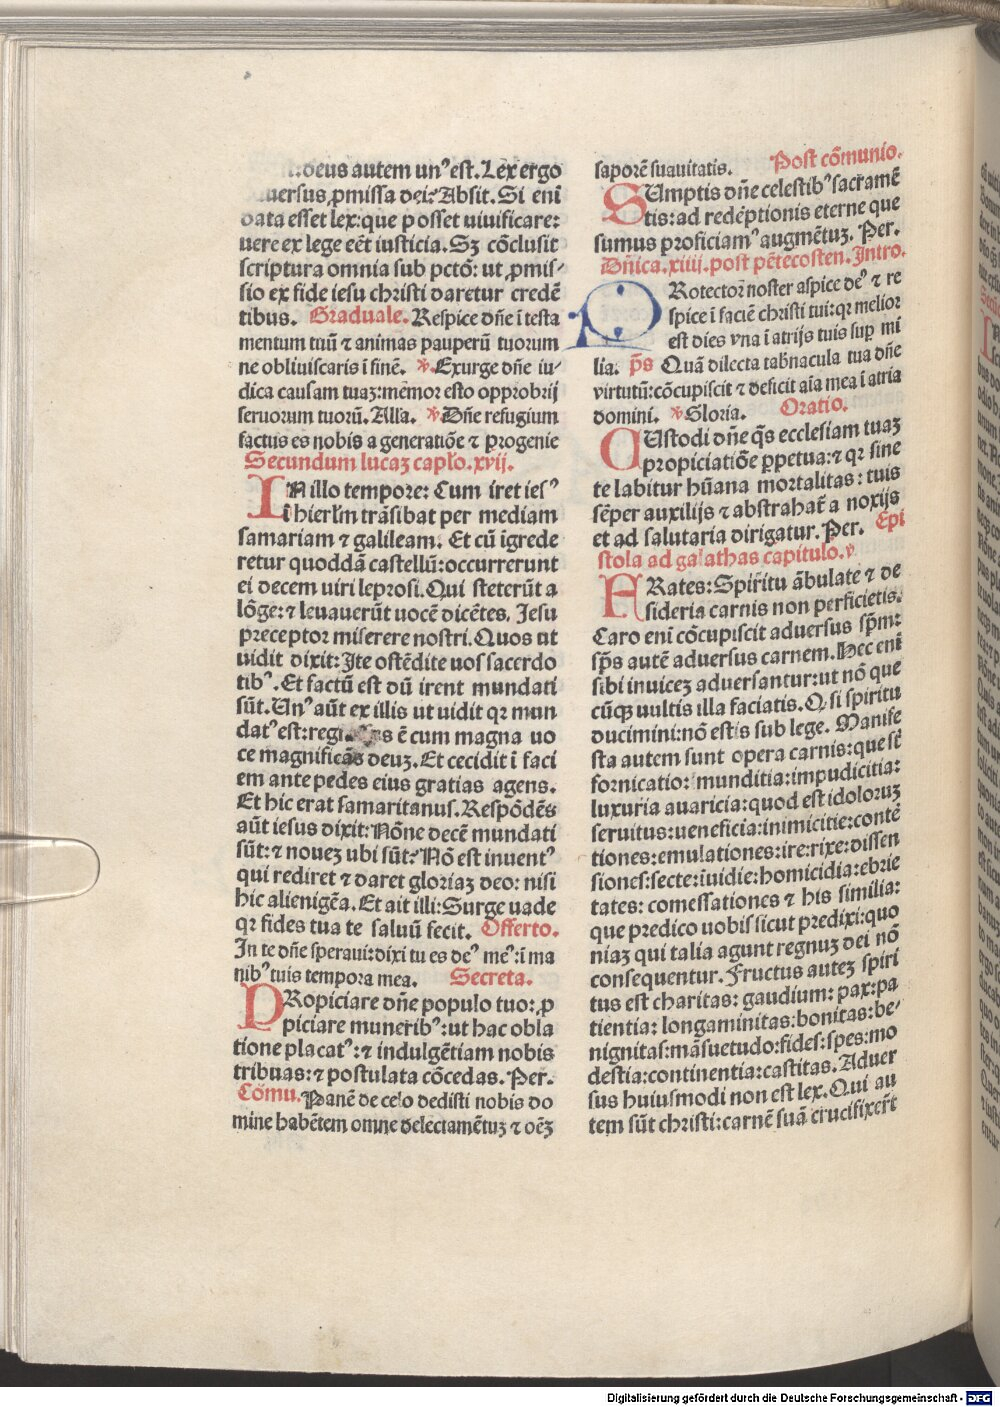 deus autem unꝰ est. Lex ergo
versus ꝓmissa dei? Absit. Si eni
data esset lex: que posset uiuificare:
uere ex lege eēt iusticia. Sꝫ cōclusit
scriptura omnia sub pctō: ut ꝓmis-
sio ex fide iesu christi daretur credē
tibus. Graduale. Respice dn̄e ī testa
mentum tuū ⁊ animas pauperū tuorum
ne obliuiscaris ī finē. ℣. Exurge dn̄e iu-
dica causam tuaꝫ: memor esto opprobrij
seruorum tuorū. Alla. ℣ Dn̄e refugium
factus es nobis a generatiōe ⁊ progenie
Secundum lucaꝫ capł̓o. xvij.
IN illo tempore: Cum iret iesꝰ
ī hierłm trāsibat per mediam
samariam ⁊ galileam. Et cū īgrede
retur quoddā castellū: occurrerunt
ei decem uiri leprosi. Qui steterūt a
lōge: ⁊ leuauerūt uocē dicētes. Jesu
preceptor miserere nostri. Quos ut
uidit dixit: Ite ostēdite uos sacerdo
tibꝰ. Et factū est dū irent mundati
sūt. Unꝰ aūt ex illis ut uidit qꝛ mun
datꝰ est: reg s ē cum magna uo
ce magnificās deuꝫ. Et cecidit ī faci
em ante pedes eius gratias agens.
Et hic erat samaritanus. Respōdēs
aūt iesus dixit: Nōne decē mundati
sūt: ⁊ noueꝫ ubi sūt? Nō est inuentꝰ
qui rediret ⁊ daret gloriaꝫ deo: nisi
hic alienigēa. Et ait illi: Surge uade
qꝛ fides tua te saluū fecit. Offerto.
In te dn̄e speraui: dixi tu es deꝰ meꝰ: ī ma
nibꝰ tuis tempora mea. Secreta.
PRopiciare dn̄e populo tuo: ꝓ
piciare muneribꝰ: ut hac obla
tione placatꝰ: ⁊ indulgētiam nobis
tribuas: ⁊ postulata cōcedas. Per.
Cōmu. Panē de celo dedisti nobis do
mine habētem omne delectamētuꝫ ⁊ oēꝫ
saporē suauitatis. Post cōmunio.
SUmptis dn̄e celestibꝰ sacramē
tis: ad redēptionis eterne que
sumus proficiamꝰ augmētuꝫ. Per.
Dn̄ica. xiiii. post pētecosten. Intro.
PRotector noster aspice deꝰ ⁊ re
spice ī faciē christi tui: qꝛ melior
est dies vna ī atrijs tuis suꝑ mi
lia. p̄s Quā dilecta tabn̄acula tua dn̄e
virtutū: cōcupiscit ⁊ deficit aīa mea ī atria
domini. ℣ Gloria. Oratio.
CUstodi dn̄e q̄s ecclesiam tuaꝫ
propiciatiōe ꝑpetua: ⁊ qꝛ sine
te labitur hūana mortalitas: tuis
sēper auxilijs ⁊ abstrahat̄ a noxijs
et ad salutaria dirigatur. Per. Epi
stola ad galathas capitulo. v
FRates: Spir̄itu ābulate ⁊ de
sideria carnis non perficietis.
Caro enī cōcupiscit aduersus sp̄m:
sp̄s autē aduersus carnem. Hec enī
sibi inuiceꝫ aduersantur: ut nō que
cūqꝫ uultis illa faciatis. Q si spiritu
ducimini: nō estis sub lege. Manife
sta autem sunt opera carnis: que st̄
fornicatio: munditia: impudicitia:
luxuria auaricia: quod est idoloruꝫ
seruitus: ueneficia: inimicitie: contē
tiones: emulationes: ire: rixe: dissen
siones: secte: īuidie: homicidia: ebrie
tates: comessationes ⁊ his similia:
que predico uobis sicut predixi: quo
niaꝫ qui talia agunt regnuꝫ dei nō
consequentur. Fructus auteꝫ spiri
tus est charitas: gaudium: pax: pa
tientia: longaminitas: bonitas: be-
nignitas: māsuetudo: fides: spes: mo
destia: continentia: castitas. Aduer
sus huiusmodi non est lex. Qui au
tem sūt christi: carnē suā crucifixer̄t
Digitalisierung gefördert durch die Deutsche Forschungsgemeinschaft - DFG